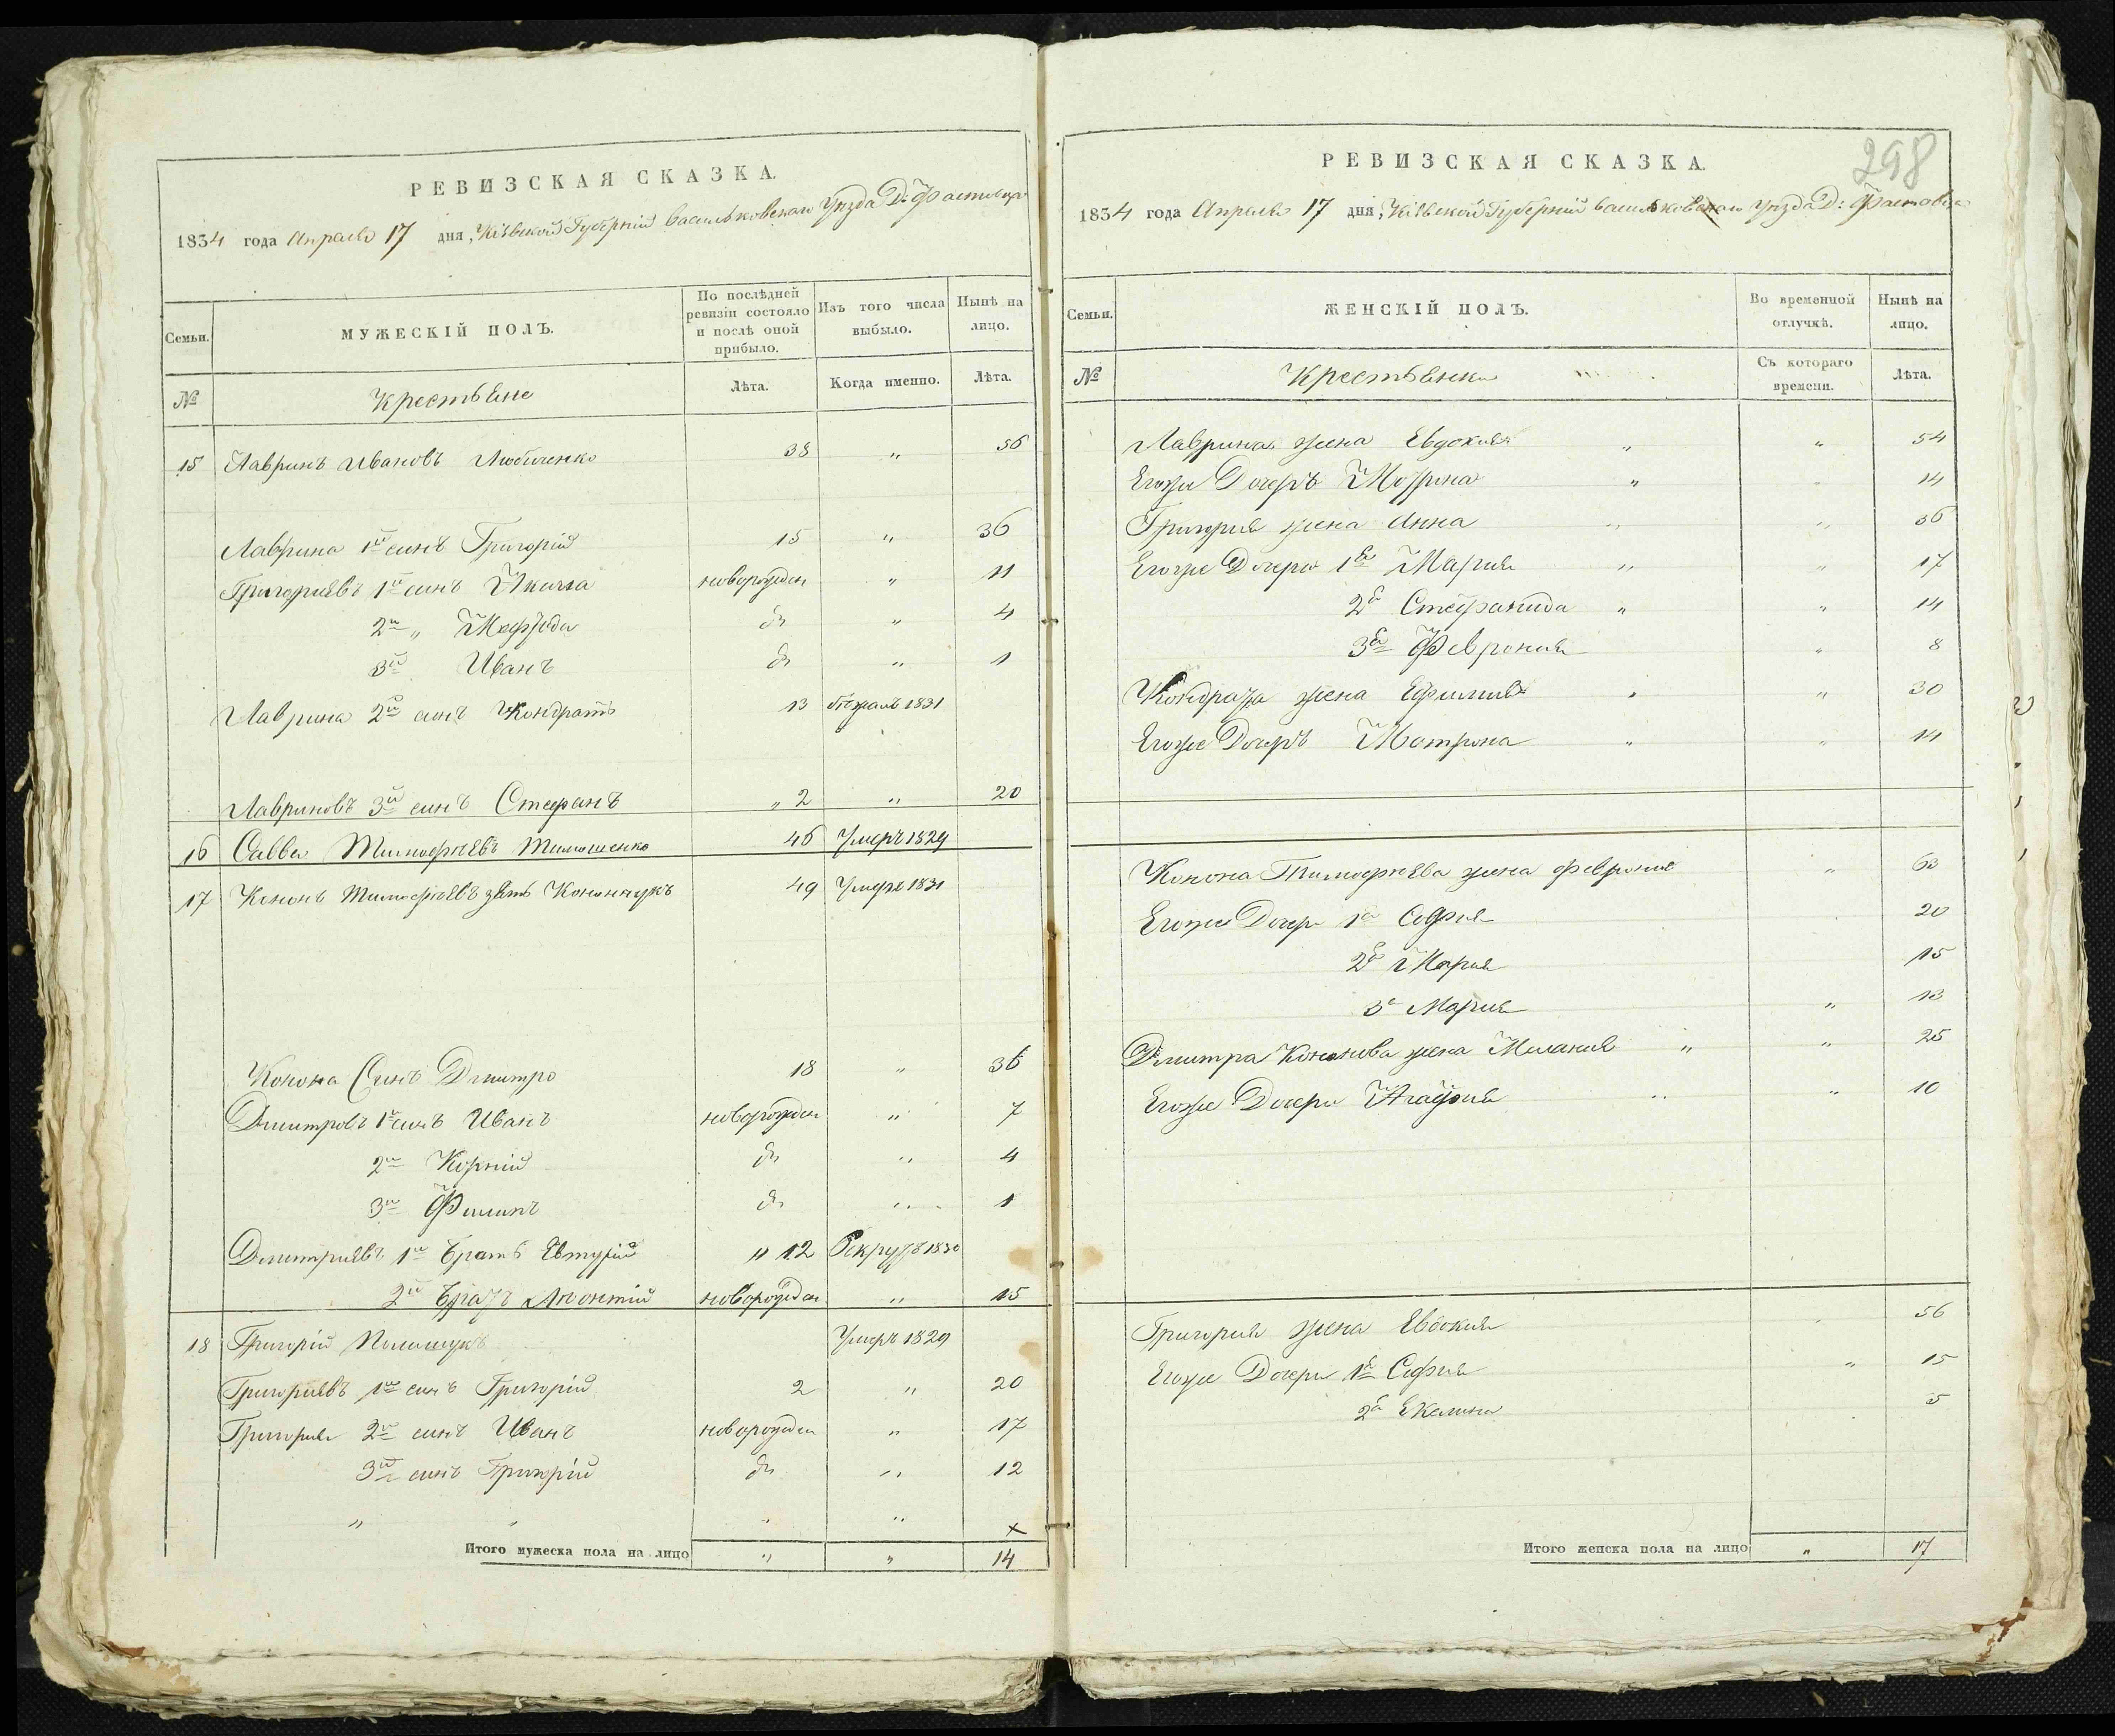 РЕВИЗСКАЯ СКАЗКА.
1834 года Апреля 17 дня, Кіевской Губерніи Васильковскаго Уѣзда Д: Фастовца
Семьи.
МУЖЕСКІЙ ПОЛЪ.
По послѣдней ревизіи состояло и послѣ оной прибыло.
Изъ того числа выбыло.
Нынѣ на лицо.
№
Крестьяне
Лѣта.
Когда именно.
Лѣта.
15 Лавринъ Ивановъ Любиченко 38 „ 56
Лаврина 1й синъ Григорій 15 „ 36
Григориевъ 1й синъ Никита новорожден „ 11
2й „ Мефодій до „ 4
3й Иванъ до „ 1
Лаврина 2й синъ Кондратъ 13 1831
Лавриновъ 3й синъ Стефанъ „ 2 „ 20
16 Савва Тимофѣевъ Тимошенко 45 Умеръ 1829
17 Кононъ Тимофѣевъ зять 49 Умеръ 1831
Конона Синъ Дмитро 18 „ 36
Дмитровъ 1й синъ Иванъ новорожден „ 7
2й Корній до „ 4
3й Филипъ до „ 1
Дмитриевъ 1й Братъ Евтухій „ 12 Рекрутъ 1830
2й Братъ Леонтий новорожден „ 15
18 Григорій Полищукъ Умеръ 1829
Григориевъ 1й синъ Григорій 2 „ 20
Григория 2й синъ Иванъ новорожден „ 17
3й синъ Григорій до „ 12
„ „ „ „ x
Итого мужеска пола на лицо „ „ 14
298
РЕВИЗСКАЯ СКАЗКА.
1834 года Апреля 17 дня, Кіевской Губерніи Васильковскаго Уѣзда Д: Фастовца
Семьи.
ЖЕНСКІЙ ПОЛЪ.
Во временной отлучкѣ.
Нынѣ на лицо.
№
Крестьянки
Съ котораго времени.
Лѣта.
Лаврина жена Евдокия „ „ 54
Егоже Дочеръ Мотрина „ 14
Григория жена Анна „ „ 36
Егоже Дочери 1я Мария „ „ 17
2я Стефанида „ „ 14
3я Феврония „ 8
Кондрата жена Ефимия „ „ 30
Егоже Дочеръ Мотрона „ „ 14
Конона Тимофѣева жена феврония „ 63
Егоже Дочери 1я София 20
2я Мария 15
3я Мария „ 13
Дмитра Кононова жена Мелания „ „ 25
Егоже Дочери Агафия „ „ 10
Григория жена Евдокия 56
Егоже Дочери 1я София „ 15
2я 5
Итого женска пола на лицо „ 17